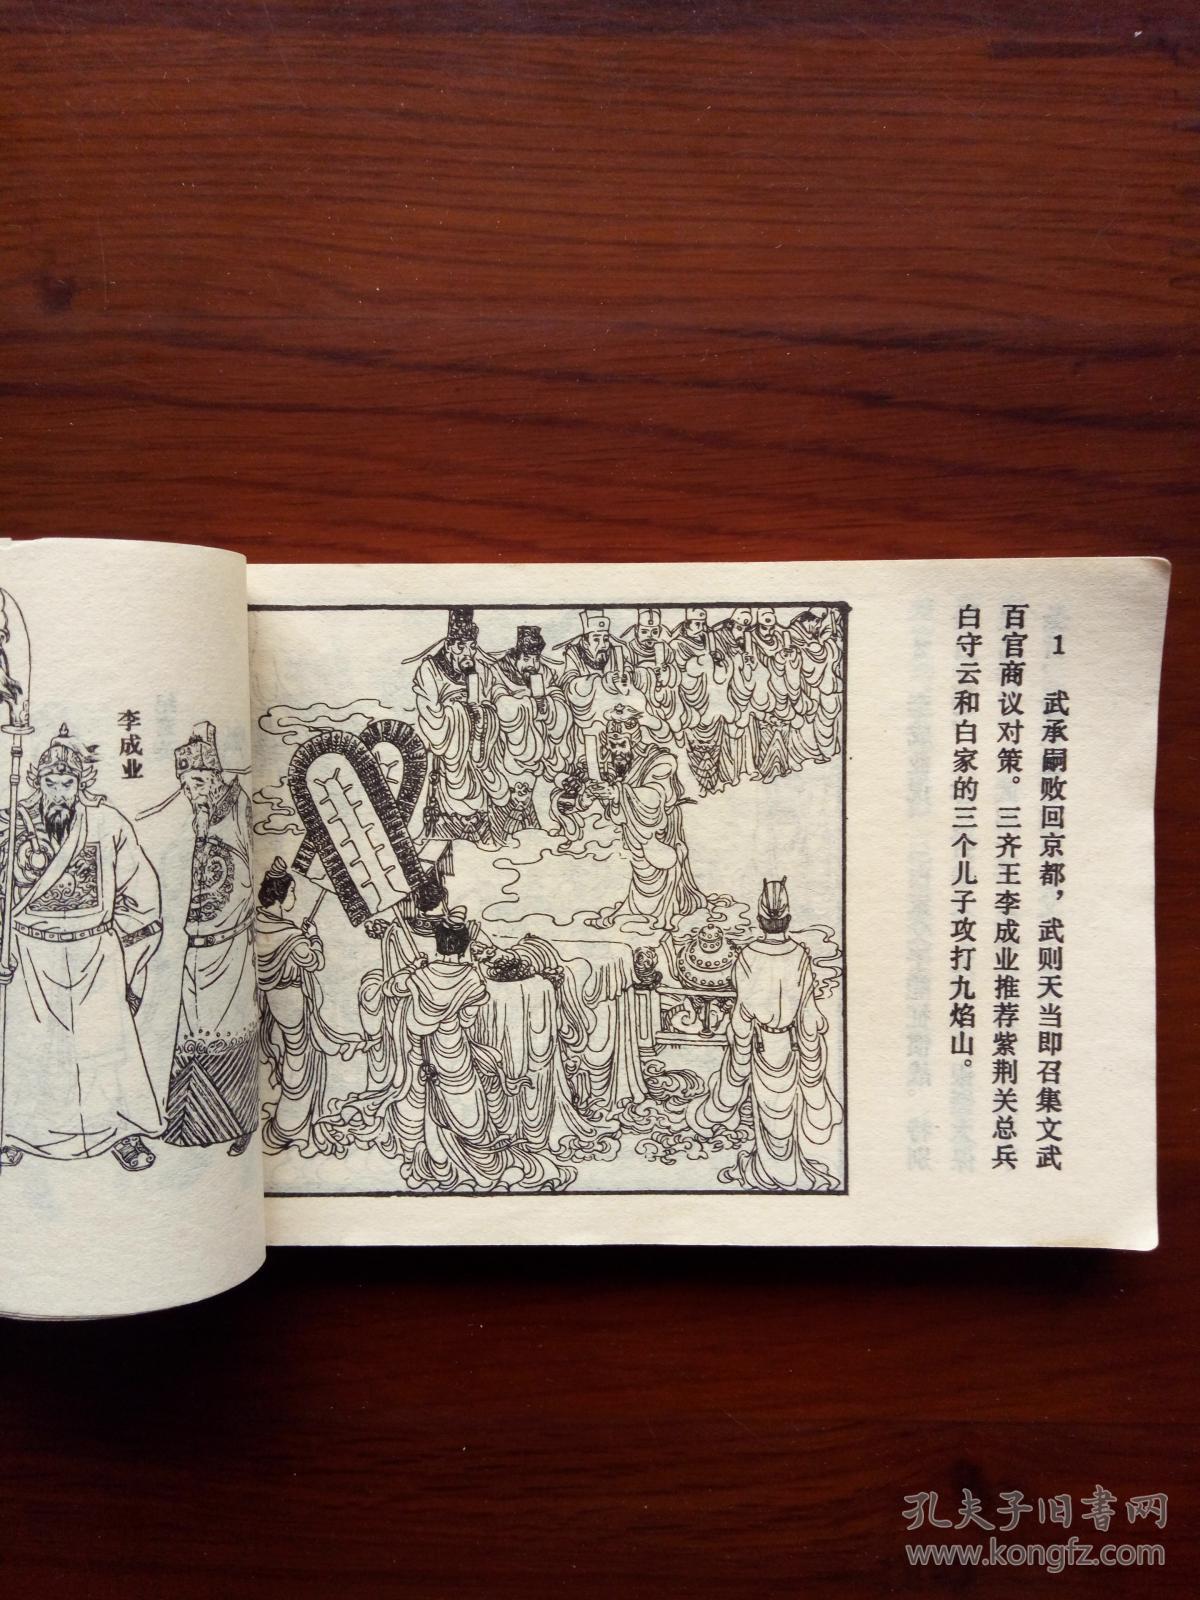 1　武承嗣败回京都，武则天当即召集文武
百官商议对策。三齐王李成业推荐紫荆关总兵
白守云和白家的三个儿子攻打九焰山。
李成业
孔夫子旧书网
www.kongfz.com